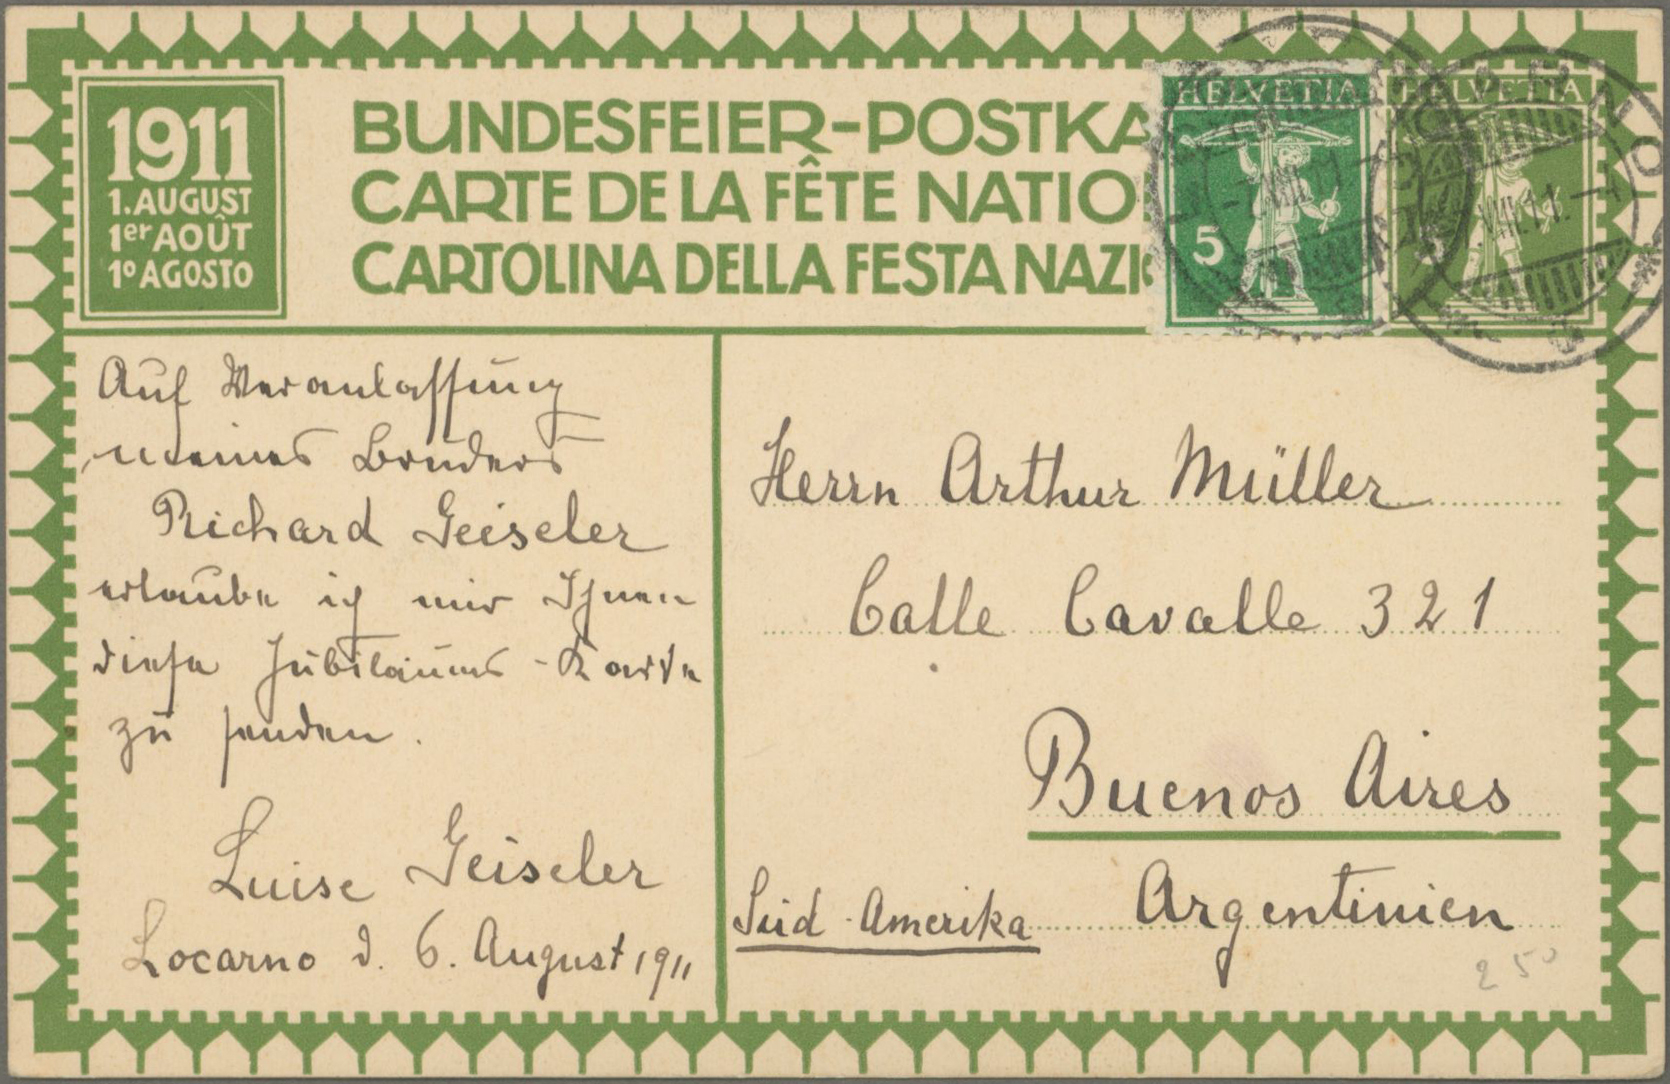 1911
1. AUGUST
1er AOÛT
1º AGOSTO
BUNDESFEIER-POSTKA
CARTE DE LA FÊTE NATIO
CARTOLINA DELLA FESTA NAZI
HELVETIA
5
HELVETIA
5
VIII.11.
Auf Veranlassung
meines Bruders
Richard Geiseler
erlaube ich mir Ihnen
diese Jubiläums-Karte
zu senden.
Luise Geiseler
Locarno d. 6. August 1911
Herrn Arthur Müller
Calle Cavalle 321
Buenos Aires
Süd-Amerika Argentinien
2 50